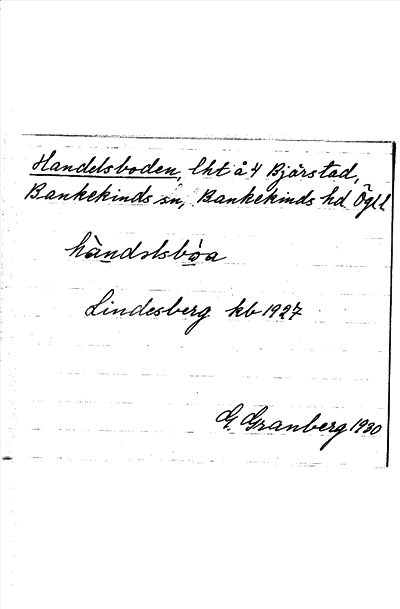 Handelsboden, lht å 4 Björstad,
Bankekinds sn, Bankekinds hd Ögl
hàndəlsbòa
Lindesberg kb 1927
G. Granberg 1930